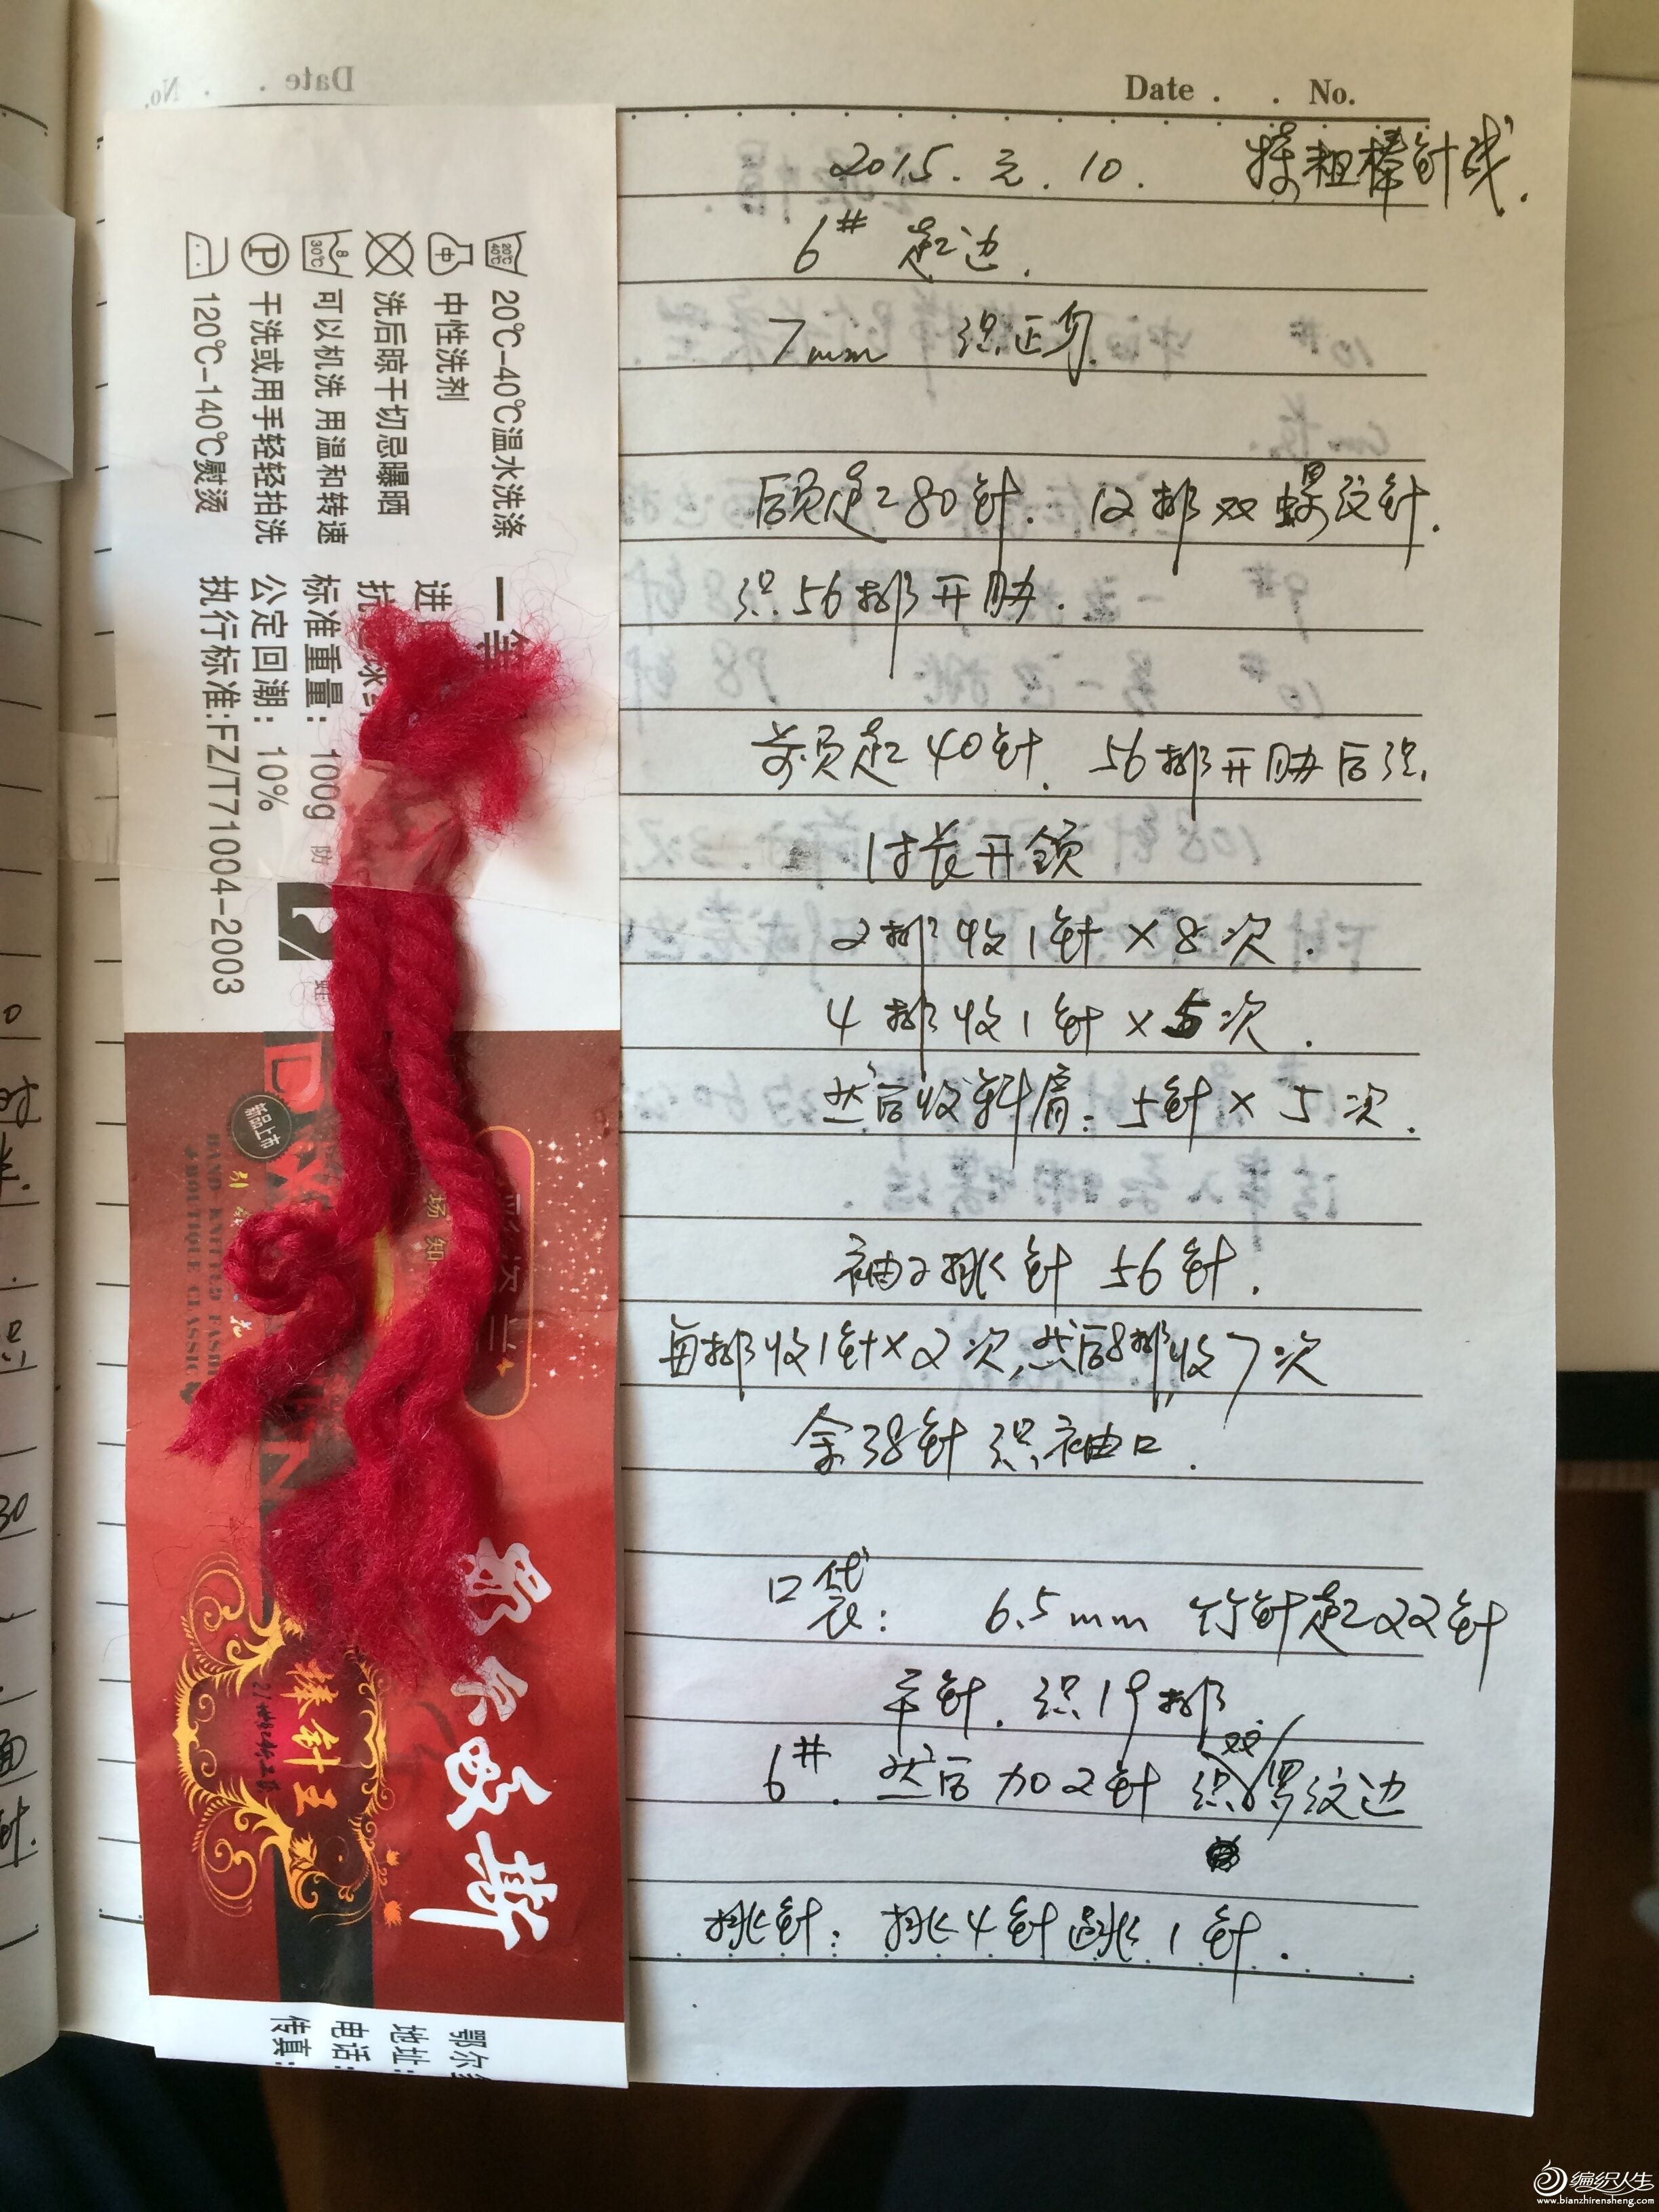 Date . . No.
2015.元.10. 特粗棒针线.
6# 起边.
7mm 织正身.
后员起80针. 12排双螺纹针.
织56排开胁.
前员起40针. 56排开胁后织
1寸长开领
2排收1针×8次.
4排收1针×5次.
然后收斜肩:5针×5次.
袖子挑针 56针.
每排收1针×2次,然后8排收7次
余38针织袖口.
口袋: 6.5mm 竹针起22针
平针. 织19排
双
6#. 然后加2针织罗纹边
挑针:挑4针跳1针.
20℃-40℃温水洗涤
中性洗剂
洗后晾干切忌曝晒
可以机洗 用温和转速
干洗或用手轻轻拍洗
120℃-140℃熨烫
一等
进
抗 球
标准重量: 100g 防 蛀
公定回潮: 10%
执行标准:FZ/T71004-2003
新品上市
HAND-KNITTED FASH
BOUTIQUE CLASSIC
棒针王
鄂尔
地址:
电话:
传真:
编织人生
www.bianzhirensheng.com